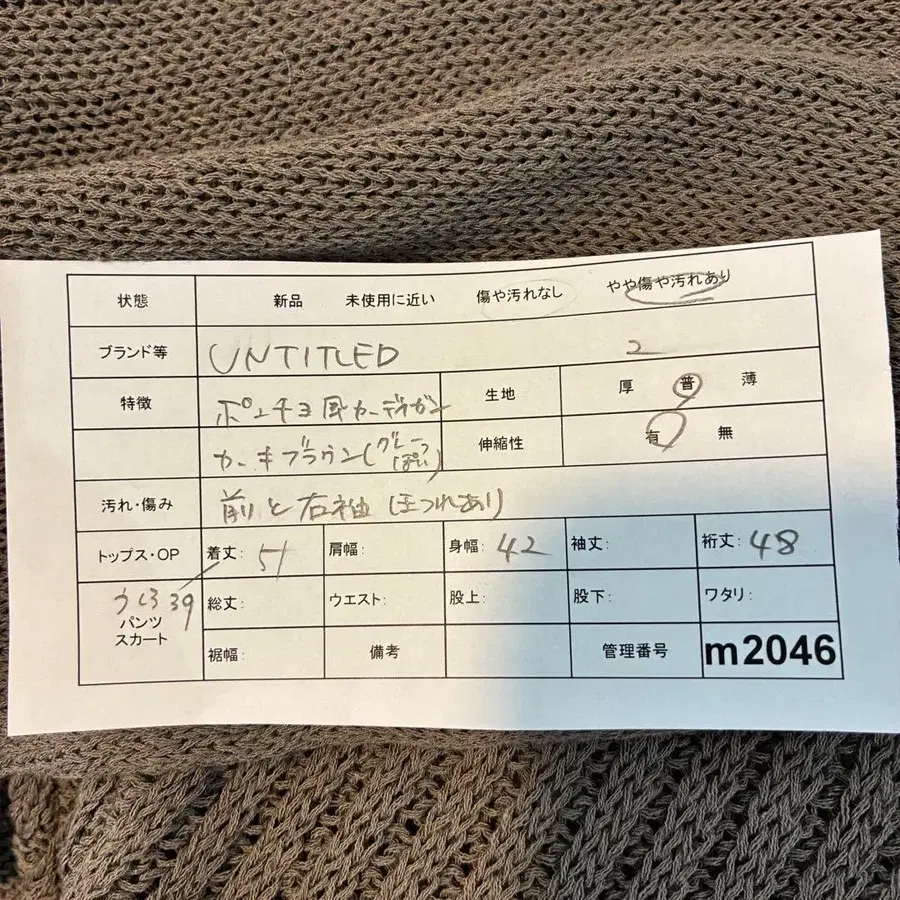 状態 新品 未使用に近い 傷や汚れなし やや傷や汚れあり
ブランド等 UNTITLED 2
特徴 ポンチョ風カーディガン 生地 厚 普 薄
カーキブラウン(グレーっぽい) 伸縮性 有 無
汚れ・傷み 前と右袖ほつれあり
トップス・OP 着丈: 51 肩幅: 身幅: 42 袖丈: 裄丈: 48
うしろ39
パンツ 総丈: ウエスト: 股上: 股下: ワタリ:
スカート
裾幅: 備考 管理番号 m2046